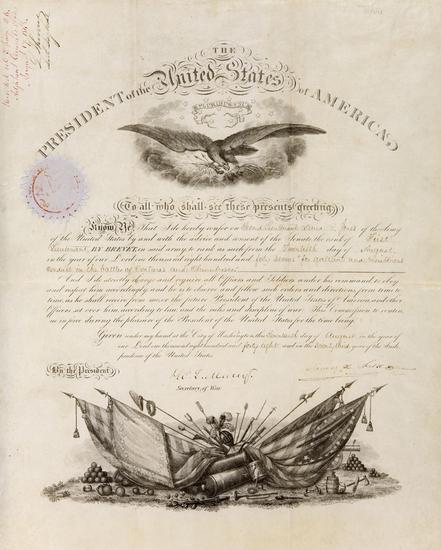 THE
United States
PRESIDENT of the of AMERICA,
E PLURIBUS UNUM
To all who shall see these presents greeting.
Know Ye, That I do hereby confer on Second Lieutenant of the Army
of the United States by and with the advice and consent of the Senate the rank of First
Lieutenant BY BREVET, in said army, to rank as such from the Twentieth day of August
in the year of our Lord one thousand eight hundred and forty seven "for gallant and meritorious
conduct in the battles of Contreras and Churubusco"
And I do strictly charge and require all Officers and Soldiers under his command to obey
and respect him accordingly; and he is to observe and follow such orders and directions from time to
time, as he shall receive from me, or the future President of the United States of America and other
Officers set over him, according to law, and the rules and discipline of war. This Commission to contin-
ue in force during the pleasure of the President of the United States for the time being.
Given under my hand at the City of Washington this day of August in the year of
our Lord one thousand eight hundred and forty eight and in the year of the Inde-
pendence of the United States.
By the President,
Secretary, of War